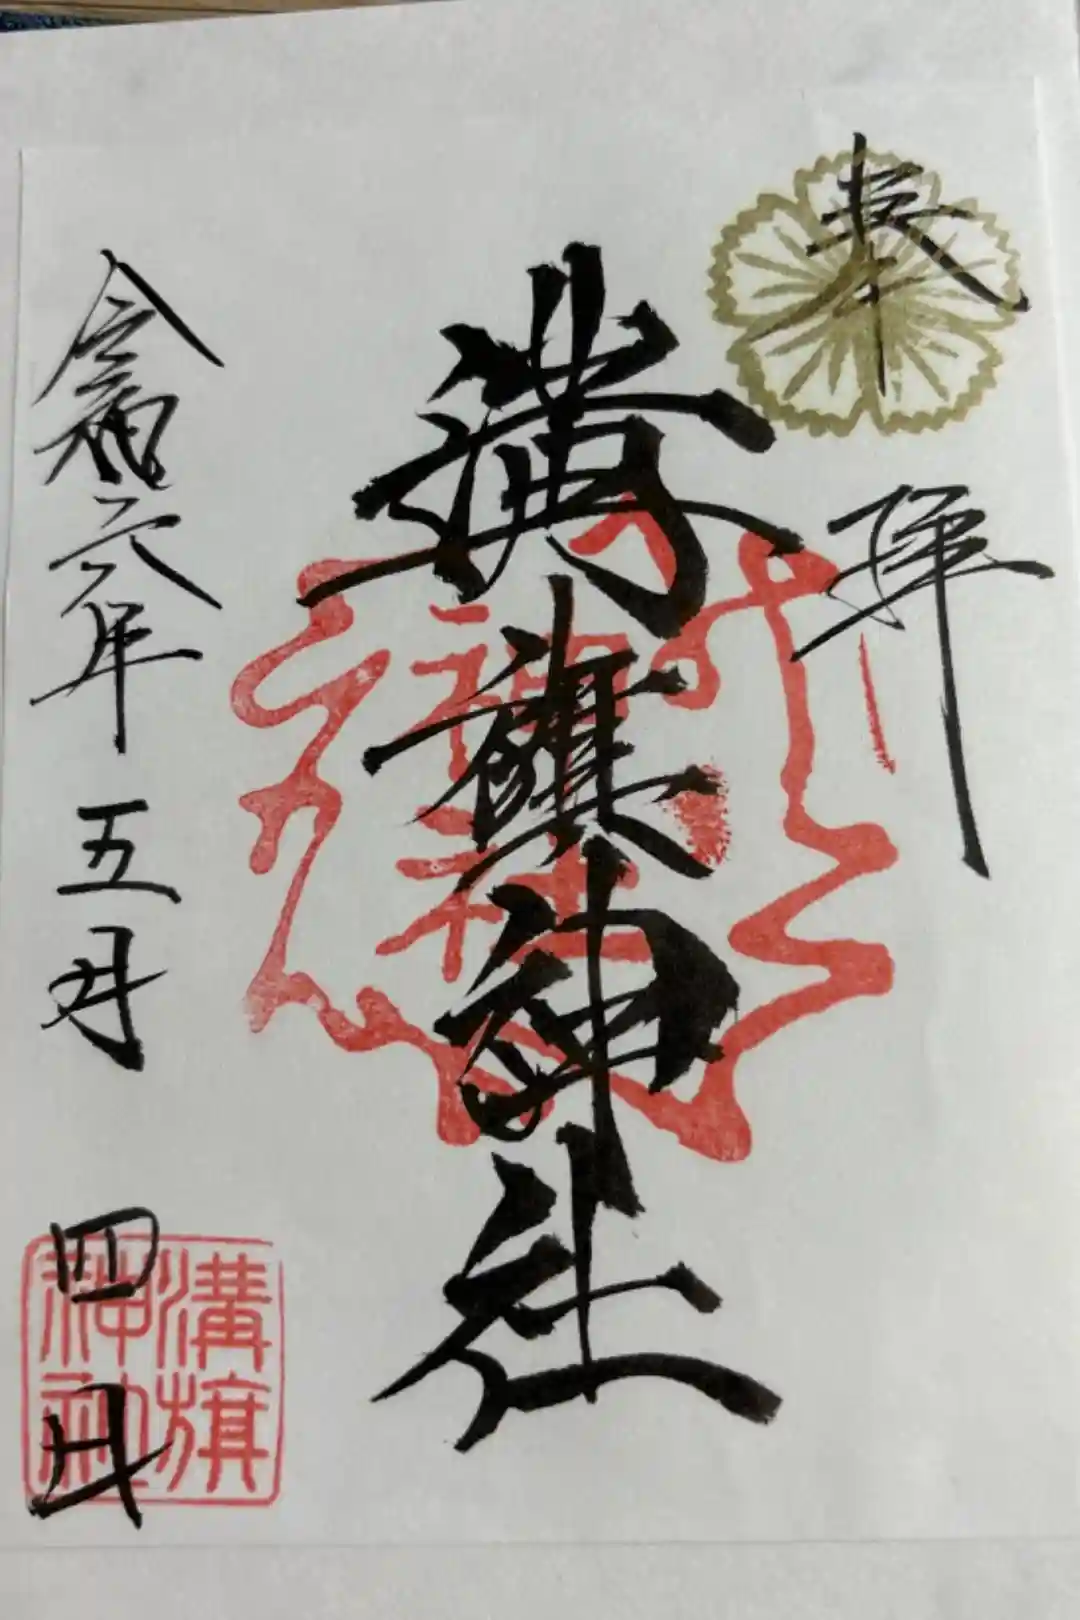 奉拝
溝旗神社
令和六年五月四日
神社
溝旗
神社